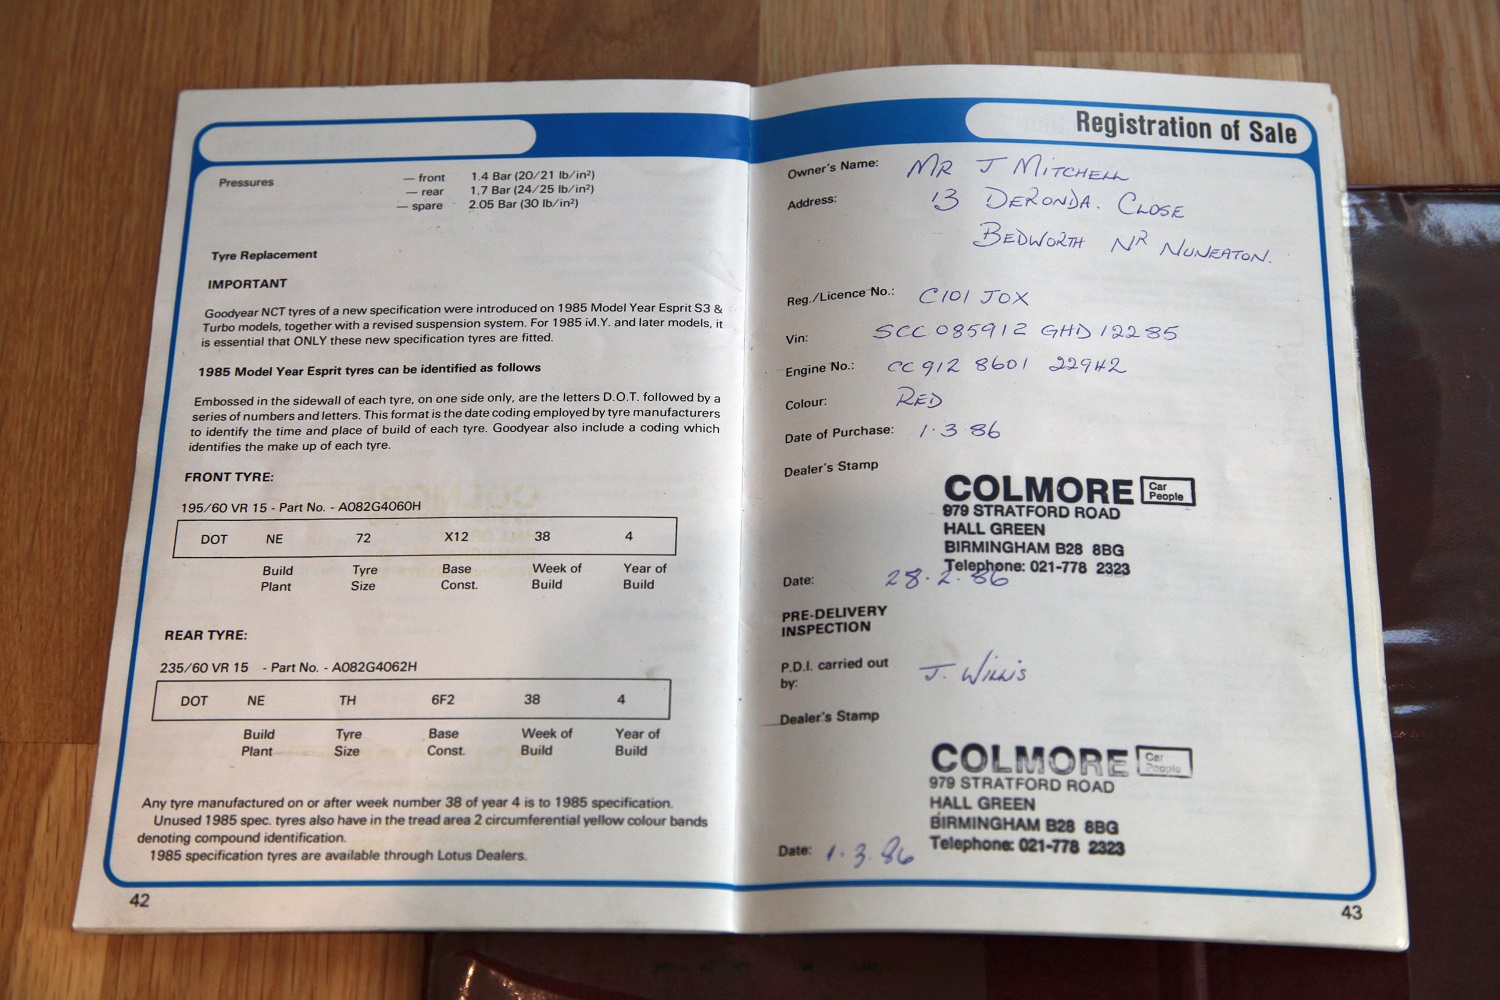 Pressures — front 1.4 Bar (20/21 lb/in²)
— rear 1.7 Bar (24/25 lb/in²)
— spare 2.05 Bar (30 lb/in²)
Tyre Replacement
IMPORTANT
Goodyear NCT tyres of a new specification were introduced on 1985 Model Year Esprit S3 &
Turbo models, together with a revised suspension system. For 1985 M.Y. and later models, it
is essential that ONLY these new specification tyres are fitted.
1985 Model Year Esprit tyres can be identified as follows
Embossed in the sidewall of each tyre, on one side only, are the letters D.O.T. followed by a
series of numbers and letters. This format is the date coding employed by tyre manufacturers
to identify the time and place of build of each tyre. Goodyear also include a coding which
identifies the make up of each tyre.
FRONT TYRE:
195/60 VR 15 - Part No. - A082G4060H
DOT NE 72 X12 38 4
Build Tyre Base Week of Year of
Plant Size Const. Build Build
REAR TYRE:
235/60 VR 15 - Part No. - A082G4062H
DOT NE TH 6F2 38 4
Build Tyre Base Week of Year of
Plant Size Const. Build Build
Any tyre manufactured on or after week number 38 of year 4 is to 1985 specification.
Unused 1985 spec. tyres also have in the tread area 2 circumferential yellow colour bands
denoting compound identification.
1985 specification tyres are available through Lotus Dealers.
42
Registration of Sale
Owner's Name: MR J MITCHELL
Address: 13 DERONDA. CLOSE
BEDWORTH NR NUNEATON.
Reg./Licence No.: C101 JOX
Vin: SCC 085912 GHD 12285
Engine No.: CC 912 8601 22942
Colour: RED
Date of Purchase: 1.3 86
Dealer's Stamp
COLMORE Car People
979 STRATFORD ROAD
HALL GREEN
BIRMINGHAM B28 8BG
Telephone: 021-778 2323
Date: 28.2.86
PRE-DELIVERY
INSPECTION
P.D.I. carried out
by: J. Willis
Dealer's Stamp
COLMORE Car People
979 STRATFORD ROAD
HALL GREEN
BIRMINGHAM B28 8BG
Telephone: 021-778 2323
Date: 1.3.86
43